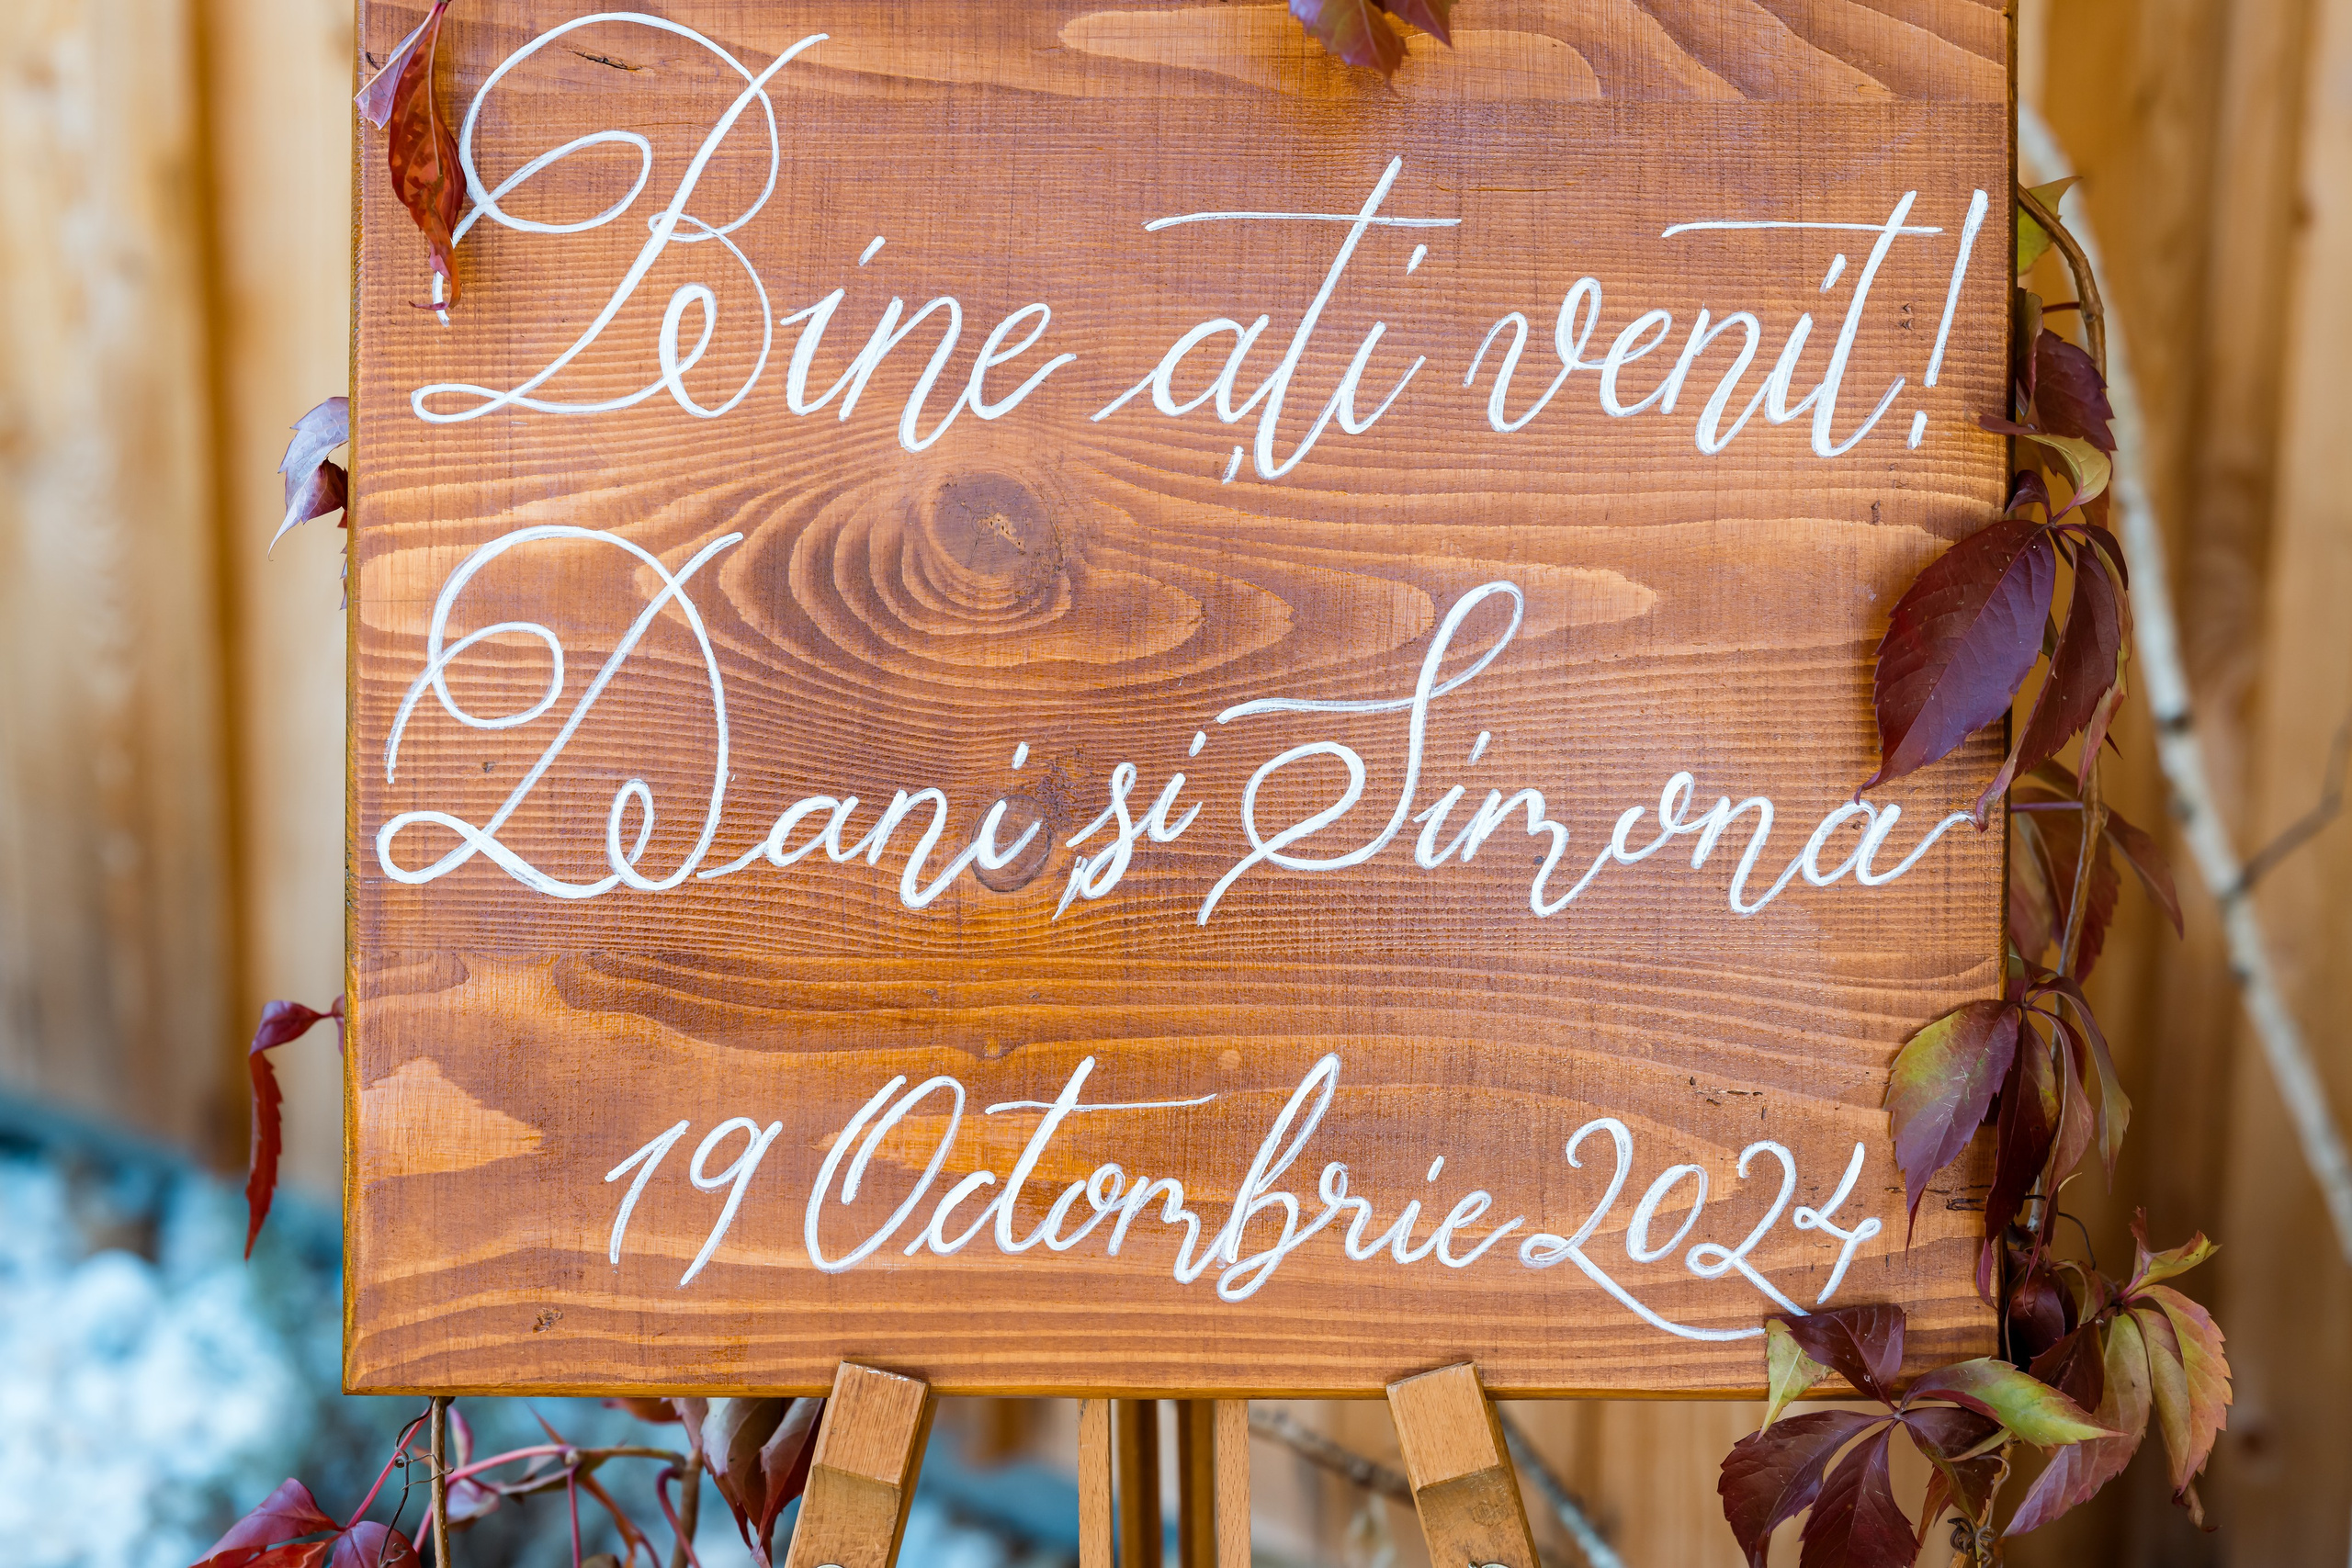 Bine ați venit!
Dani și Simona
19 Octombrie 2024